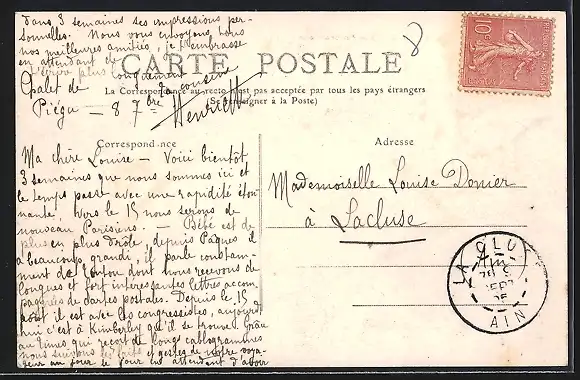 dans 3 semaines ses impressions per-
sonnelles. Nous vous envoyons tous
nos meilleures amitiés, je t'embrasse
en attendant de
t'écrire plus longuement
ta cousine
Henriette
Chalet de
Piégu - 8 7bre
CARTE POSTALE
La Correspondance au recto n'est pas acceptée par tous les pays étrangers
(Se renseigner à la Poste)
Correspondance
Ma chère Louise - Voici bientôt
3 semaines que nous sommes ici et
le temps passe avec une rapidité éton-
nante! Vers le 15 nous serons de
nouveau Parisiens. - Bébé est de
plus en plus drôle, depuis Pâques il
a beaucoup grandi, il parle constam-
ment de tonton dont nous recevons de
longues et fort intéressantes lettres accom-
pagnées de cartes postales. Depuis le 15
août il est avec les congressistes, aujourd'
hui c'est à Kimberley qu'il se trouve. Grâce
au Times qui reçoit de longs cablogrammes
nous suivons les faits et gestes de notre voya-
geur au jour le jour en attendant d'avoir
Adresse
Mademoiselle Louise Donier
à Lacluse
10
LA CLUSE
SEPT
05
AIN